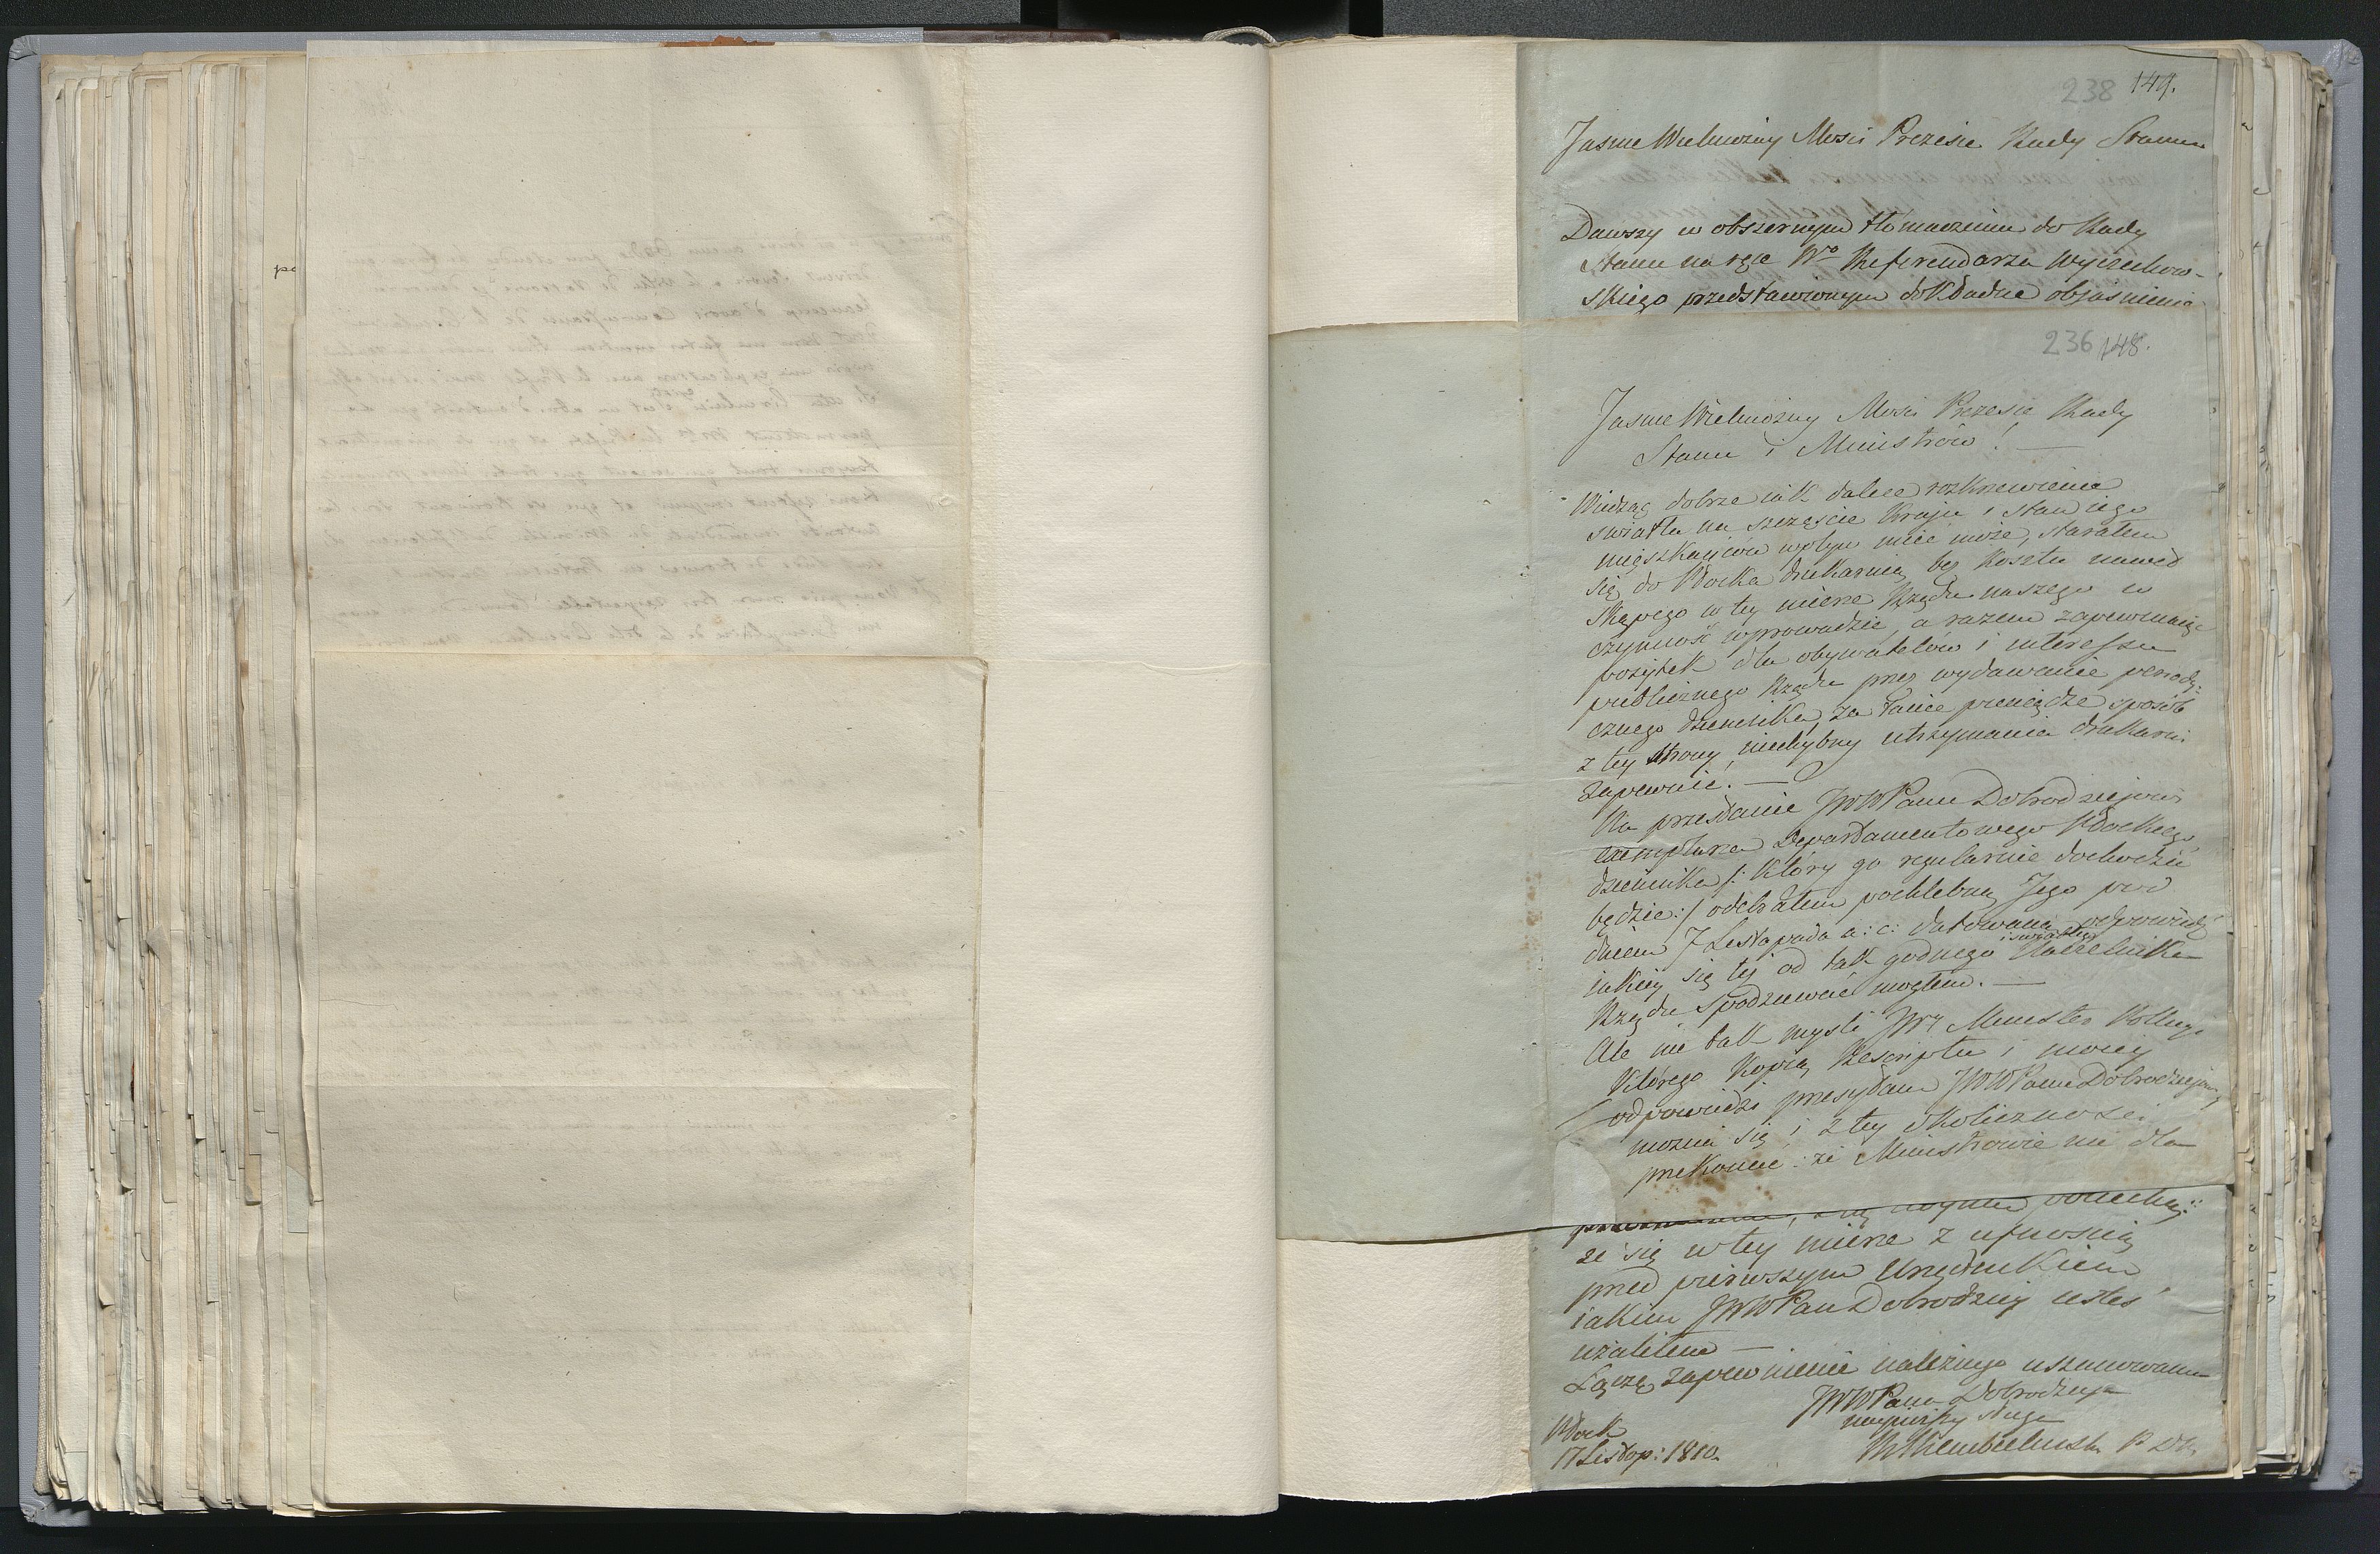 238 149.
Jasnie Wielmożny Mości Prezesie Rady Stanu
Dawszy w obszernym tłómaczeniu do Rady
Stanu na ręce Wo Referendarza Wyczechow-
skiego przedstawionym dokładne objaśnienie
236 148.
Jasnie Wielmożny Mości Prezesie Rady
Stanu i Ministrów! —
Widząc dobrze iak dalece rozkrzewienie
swiatła na szczęście Kraju i stan iego
mięszkańców wpływ mieć może, starałem
się do Płocka drukarnią bez kosztu nawed
skąpego w tey mierze Rządu naszego w
czynność wprowadzić, a razem zapewniaiąc
pożytek dla obywatelów i interessu
publicznego Rządu przez wydawanie perody-
cznego dziennika, za tanie pieniądze sposób
z tey strony niechybny utrzymania drukarni
zapewnić. —
Na przesłanie JWWPanu Dobrodziejowi
exemplarza Departamentowego Płockiego
dziennika /: który go regularnie dochodzić
będzie :/ odebrałem pochlebną Jego pod
dniem 7 Listopada a: c: datowaną odpowiedź
iakiey się tej od tak godnego i światłego Naczelnika
Rządu spodziewać mogłem. —
Ale nie tak mysli JWy Minister Policyi
którego kopią Rescriptu i moiey
odpowiedzi przesyłam JWWPanu Dobrodziejowi,
można się i z tey okoliczności
przekonać: że Ministrowie nie dla
że się w tey mierze z ufnoscią
pred pierwszym Urzędnikiem
iakim JWWPan Dobrodziey iesteś
użaliłem —
Łączę zapewnienie należnego uszanowania
JWWPana Dobrodzieja
nayniższy sługa
Rembieliński P. D. P.
Płock
17 Listop: 1810.